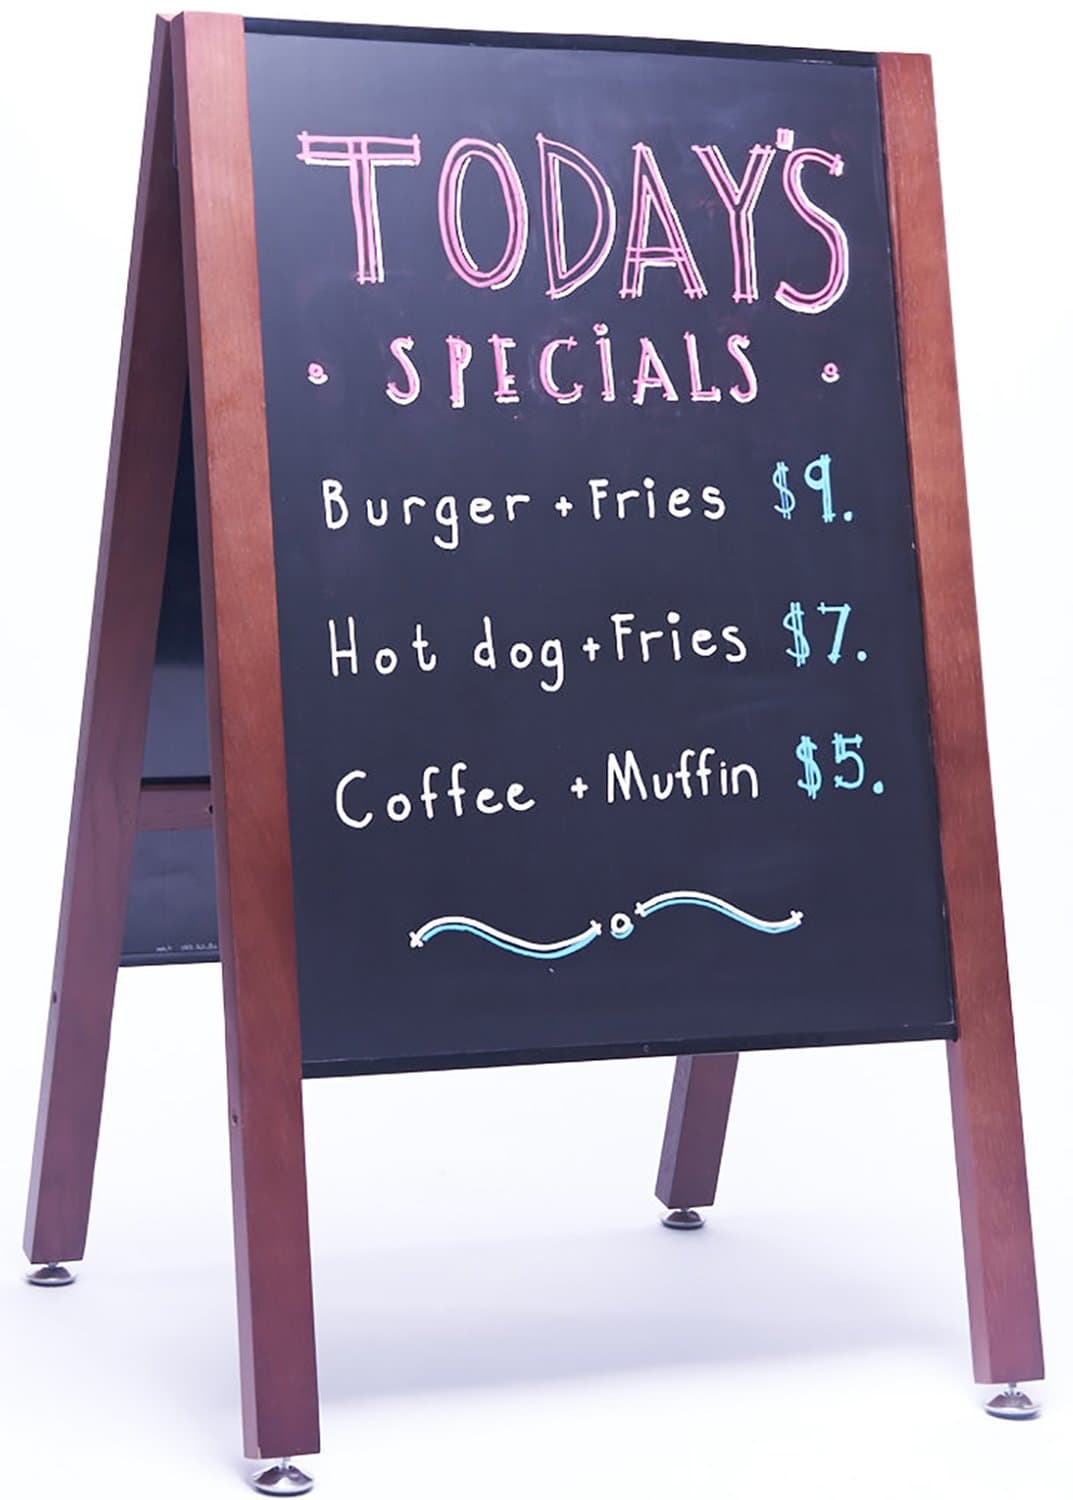 TODAY'S
SPECiALS
Burger + Fries $9.
Hot dog + Fries $7.
Coffee + Muffin $5.